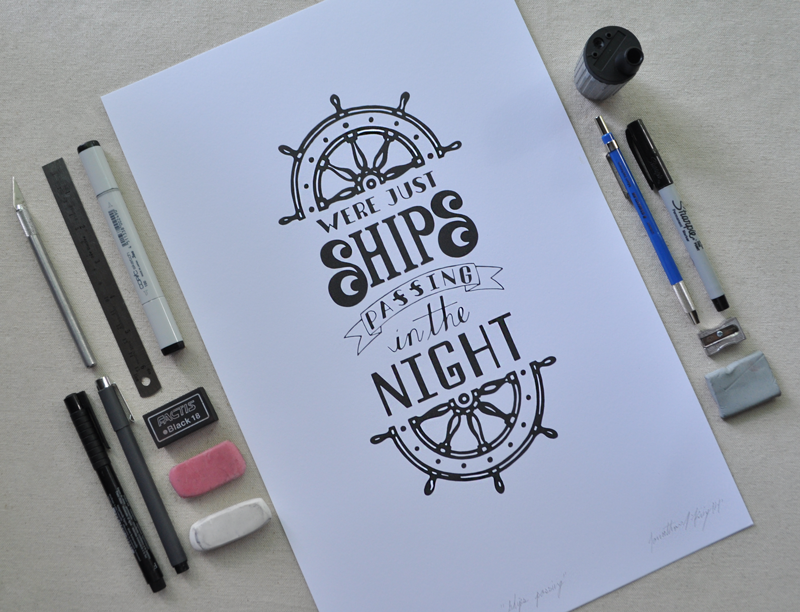 WERE JUST
SHIPS
PASSING
in the
NIGHT
FACTIS
Black 18
Sharpie